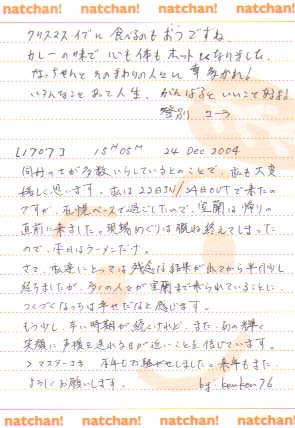 natchan! natchan! natchan! natchan!
クリスマス・イブに食べるのもおつですね。
カレーの味で心も体もホットになりました。
なっちゃんとそのまわりの人々に幸多かれ!
いろんなことあって人生、がんばるといいことあるよ!
登別 コーラ
[1707] 15H05M 24 Dec 2004
同舟の士が多数いらしているとのことで、私も大変
嬉しく思います。私は22日IN/24日OUTで来たの
ですが、札幌ベースで過ごしたので、室蘭は帰りの
直前に来ました。現場めぐりは概ね終えてしまった
ので、本日はラーメンだけ。
さて、私達にとっては残念な結果が出てから半月少し
経ちましたが、多くの人々が室蘭まで来られていることに、
つくづくなっちは幸せだなと感じます。
もう少し、辛い時期が続くけれど、また、あの輝く
笑顔に声援を送れる日が近いことを信じています。
>マスターさま 本年もお騒がせしました。来年もまた
よろしくお願いします。 by. kenken76
natchan! natchan! natchan! natchan!